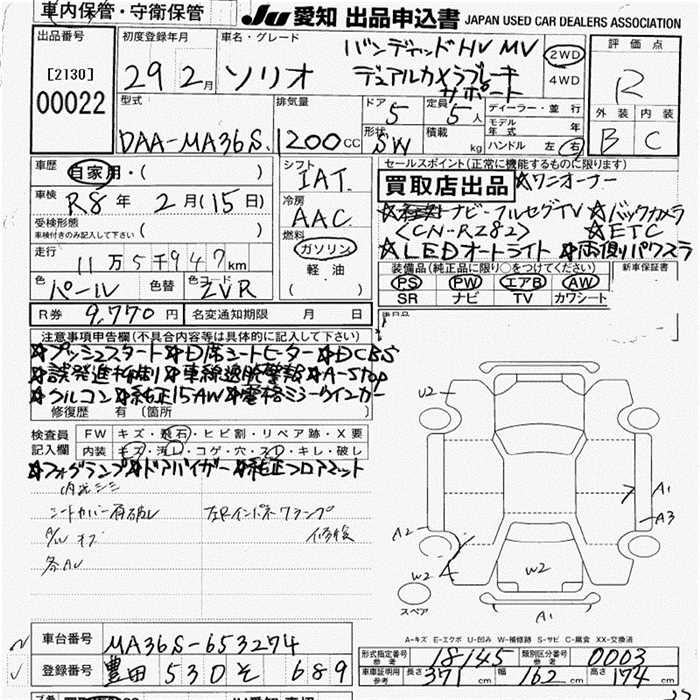 車内保管・守衛保管
JU 愛知 出品申込書 JAPAN USED CAR DEALERS ASSOCIATION
出品番号
[2130]
00022
初度登録年月
29 2月
車名・グレード
ソリオ
バンディッド HV MV
デュアルカメラブレーキ
サポート
2WD
4WD
評価点
R
外装 内装
B C
型式
DAA-MA36S
排気量
1200 CC
ドア
5
定員
5人
形状
SW
積載
kg
ディーラー・並行
モデル
年式 年
ハンドル 左・右
車歴
自家用・( )
車検
R8年 2月(15日)
受検形態
車検付きのみ記入して下さい ( )
走行
11万5千947km
色
パール
色替
色コード
ZVR
シフト
IAT
冷房
AAC
燃料
ガソリン
軽油
( )
セールスポイント(正常に機能するものに限ります)
買取店出品 ☆ワンオーナー
ナビ・フルセグTV ☆バックカメラ
〈CN-RZ82〉 ☆ETC
☆LEDオートライト ☆両側パワスラ
装備品(純正品に限り○をつけてください)
PS PW エアB AW
SR ナビ TV カワシート
新車保証書
R券 9,770円
名変通知期限 月 日
注意事項申告欄(不具合内容等は具体的に記入して下さい)
☆プッシュスタート ☆D席シートヒーター ☆DCBS
☆誤発進抑制 ☆車線逸脱警報 ☆A-STOP
☆クルコン ☆純正15AW ☆電格ミラーウインカー
修復歴 有 (箇所 )
検査員
記入欄
FW キズ・飛石・ヒビ割・リペア跡・X要
内装 キズ・汚レ・コゲ・穴・スレ・キレ・破レ
☆フォグランプ ☆ドアバイザー ☆純正フロアマット
内装シミ
シートカバー有 破レ
左Rインパネクランプ
修復
A/W キズ
各AU
U2
A1
A3
A2
W2
W2
A1
スペア
A-キズ E-エクボ U-凹み W-補修跡 S-サビ C-腐食 XX-交換済
車台番号
MA36S-653274
登録番号
豊田 530 そ 689
形式指定番号
参考
18145
類別区分番号
参考
0003
車庫証明用
参考
長さ 371cm
幅 162cm
高さ 174cm